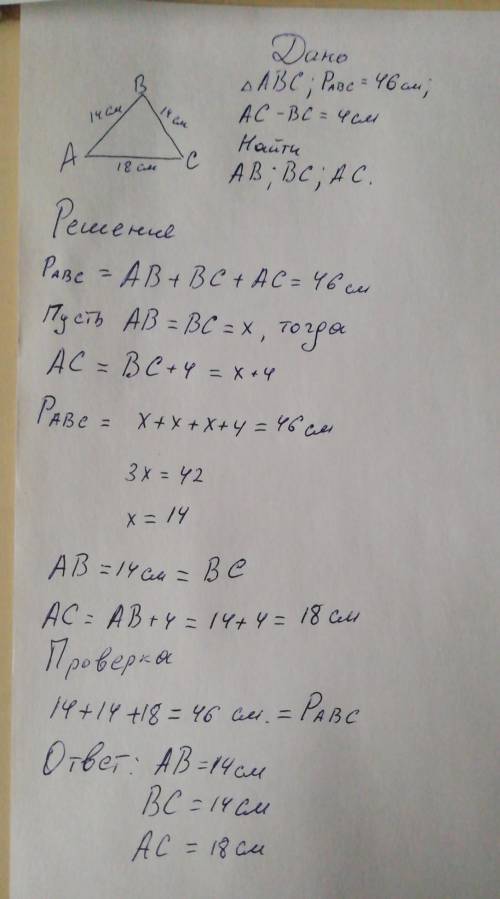 Дано
△ABC; P_ABC = 46 см;
AC - BC = 4 см
Найти
AB; BC; AC.
B
14 см
14 см
A
18 см
C
Решение
P_ABC = AB + BC + AC = 46 см
Пусть AB = BC = x, тогда
AC = BC + 4 = x + 4
P_ABC = x + x + x + 4 = 46 см
3x = 42
x = 14
AB = 14 см = BC
AC = AB + 4 = 14 + 4 = 18 см
Проверка
14 + 14 + 18 = 46 см. = P_ABC
Ответ: AB = 14 см
BC = 14 см
AC = 18 см